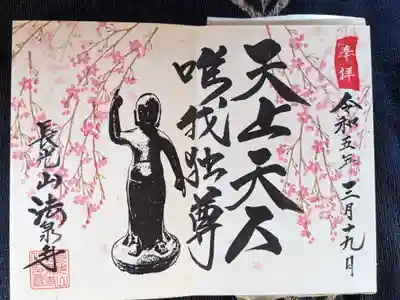 奉拝
令和五年三月十九日
天上天下
唯我独尊
法泉寺